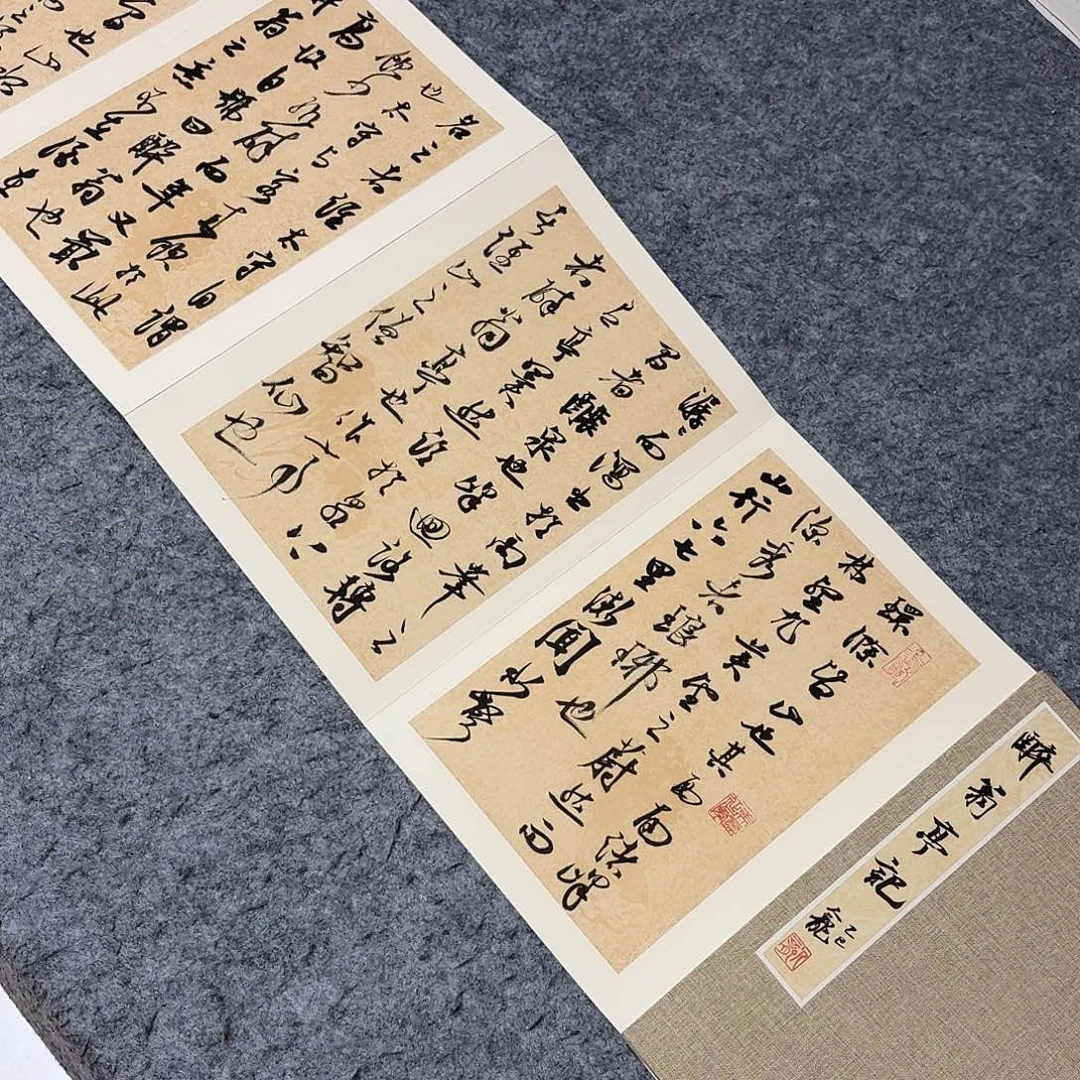 醉翁亭記
乙巳
環滁皆山也其西南諸峰
林壑尤美望之蔚然而
深秀者琅琊也
山行六七里漸聞水聲
潺潺而瀉出於兩峯之
間者釀泉也峰迴路轉
有亭翼然臨於泉上
者醉翁亭也作亭
者誰山之僧智仙也
名之者誰太守自謂
也太守與客來飲於此
飲少輒醉而年又最
高故自號曰醉翁也
醉翁之意不在酒在